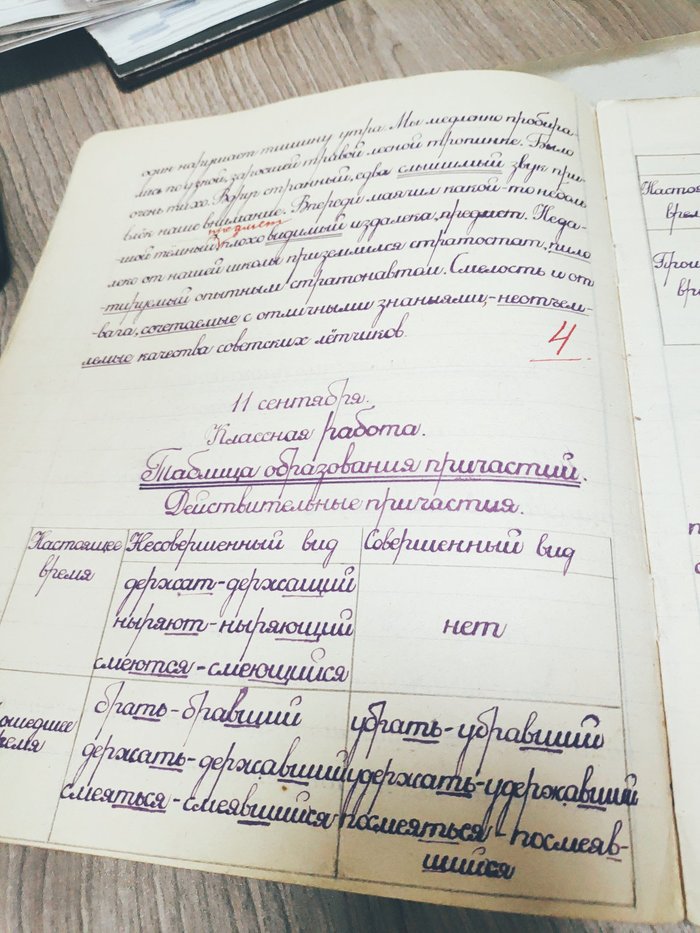 один нарушает тишину утра. Мы медленно пробира-
лись по узкой, заросшей травой лесной тропинке. Было
очень тихо. Вдруг странный, едва слышимый звук при-
влёк наше внимание. Впереди маячил какой-то неболь
предмет
-шой тёмный, плохо видимый издалека, предмет. Неда-
леко от нашей школы приземлился стратостат, пило
-тируемый опытным стратонавтом. Смелость и от
-вага, сочетаемые с отличными знаниями, - неотъем-
лемые качества советских лётчиков.
4
11 сентября.
Классная работа.
Таблица образования причастий.
Действительные причастия.
Настоящее время
Несовершенный вид
Совершенный вид
держат - держащий
ныряют - ныряющий
смеются - смеющийся
нет
ошедшее
ремя
брать - бравший
держать - державший
смеяться - смеявшийся
убрать - убравший
удержать - удержавший
посмеяться - посмеяв-
шийся
Настоя
врем
Прош
вре